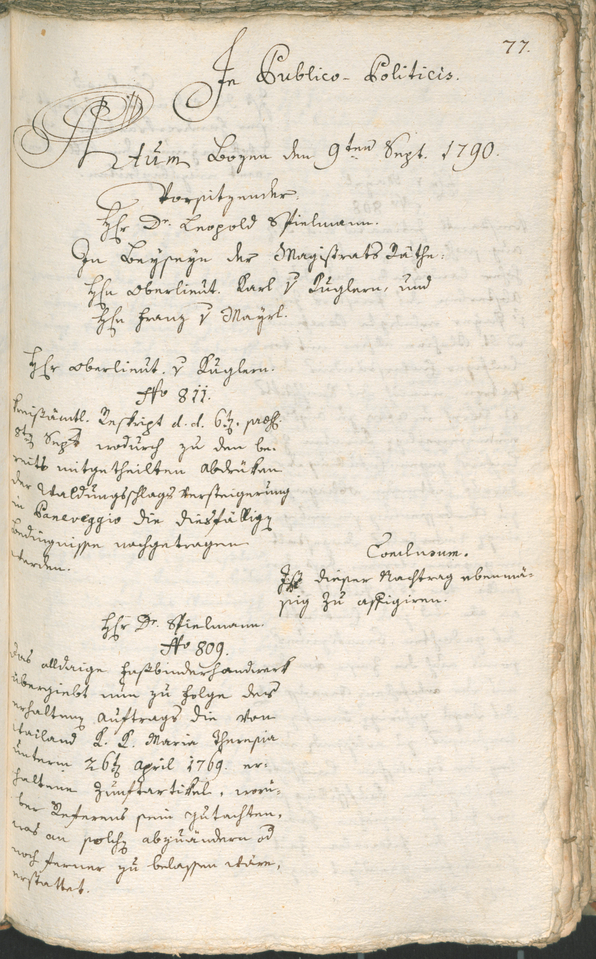 77.
In Publico-Politicis.
Actum Bozen den 9ten Sept. 1790.
Vorsitzender.
Hr Dr. Leopold Spielmann.
In Beyseyn der Magistrats Räthe:
Hn Oberlieut. Karl v Kuglern, und
Hn Franz v Mayrl.
Hr Oberlieut. v Kuglern.
No 811.
Kreisämtl. Reskript d.d. 6t, præs.
8t Sept wodurch zu den be-
reits mitgetheilten Abdrüken
der Waldungsschlags Versteigerung
in Paneveggio die diesfälligen
Bedingnisse nachgetragen
werden.
Conclusum.
Ist dieser Nachtrag ebenmä-
ßig zu affigiren.
Hr Dr. Spielmann.
No 809.
Das alldaige Faßbinderhandwerk
übergiebt nun zu Folge des
erhaltenen Auftrags die von
Weiland K. K. Maria Theresia
unterm 26t April 1769. er-
haltene Zunftartikel, worü-
ber Referens sein Gutachten,
was an solchen abzuändern od
noch ferner zu belassen wäre,
erstattet.